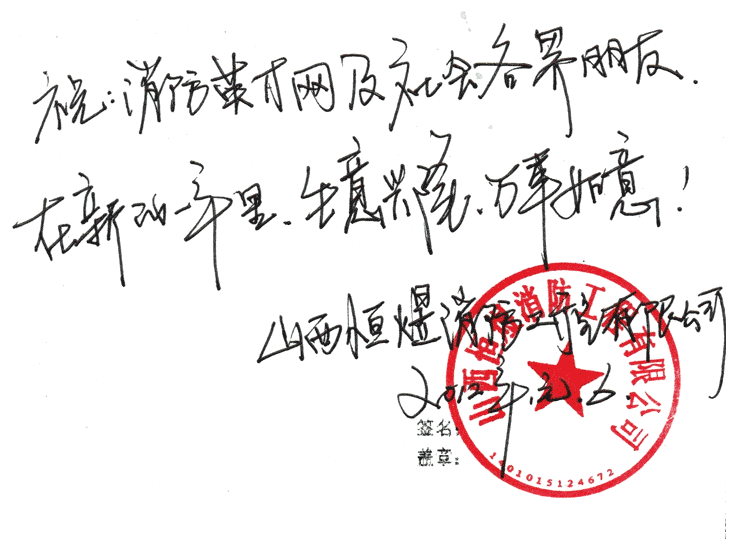 祝:消防英才网及社会各界朋友.
在新的一年里、生意兴隆、万事如意!
山西恒煜消防工程有限公司
2012年.元.6.
签名:
盖章:
山西恒煜消防工程有限公司
1401015124672